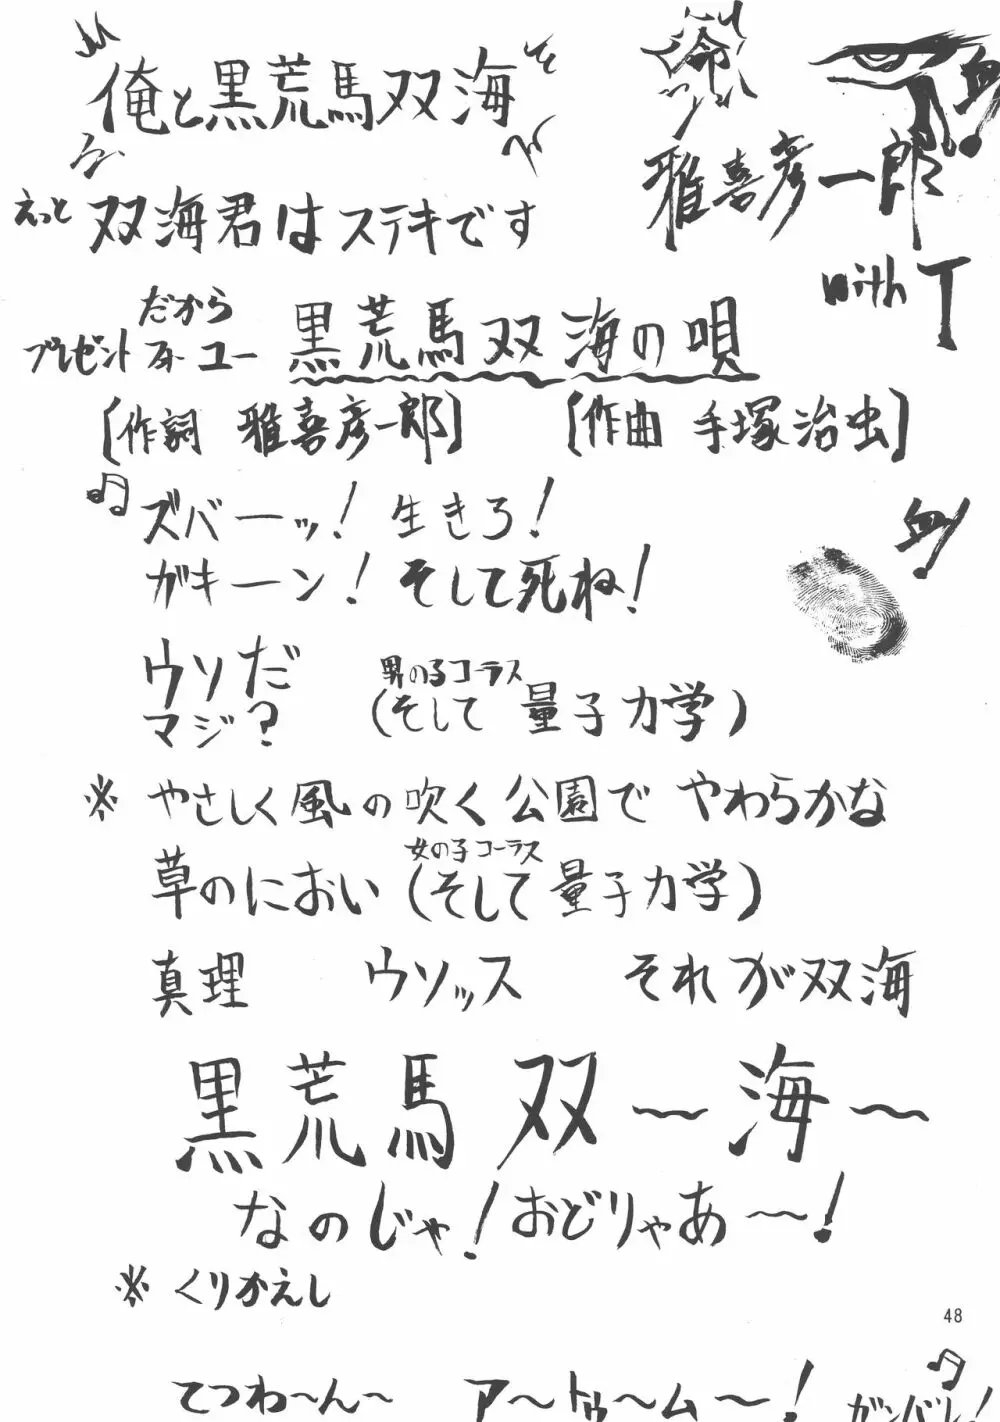 俺と黒荒馬双海
命
血!
雅喜彦一郎
with T
えっと 双海君はステキです
だから
プレゼント フォー ユー 黒荒馬双海の唄
[作詞 雅喜彦一郎] [作曲 手塚治虫]
♫ズバーッ! 生きろ!
血!
ガキーン! そして死ね!
ウソだ
マジ?
男の子コーラス
(そして 量子力学)
※ やさしく風の吹く公園で やわらかな
女の子コーラス
草のにおい (そして 量子力学)
真理 ウソッス それが双海
黒荒馬双〜海〜
なのじゃ! おどりゃあ〜!
※ くりかえし
48
てつわ〜ん〜 ア〜トゥ〜ム〜! ♫
ガンバレ!